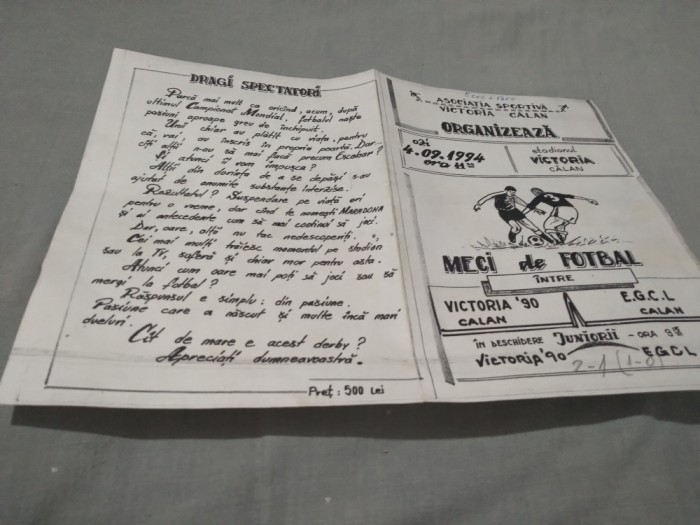 DRAGI SPECTATORI
Parcă mai mult ca oricînd, acum, după
ultimul Campionat Mondial, fotbalul naşte
pasiuni aproape greu de închipuit.
Unii chiar au plătit cu viaţa, pentru
că, vai!, au înscris în propria poartă. Dar...
cîţi alţii n-au să mai facă precum Escobar?
Şi atunci îi vom împuşca?
Alţii din dorinţa de a se depăşi s-au
ajutat de anumite substanţe interzise.
Rezultatul? Suspendare pe viaţă ori
pentru o vreme, dar cînd te numeşti MARADONA
şi ai antecedente cum să mai continui să joci.
Dar, oare, alţii nu tac nedescoperiţi.
Cei mai mulţi trăiesc momentul pe stadion
sau la TV, suferă şi chiar mor pentru asta.
Atunci cum oare mai poţi să joci sau să
mergi la fotbal?
Răspunsul e simplu: din pasiune.
Pasiune care a născut şi multe încă mari
dueluri.
Cît de mare e acest derby?
Apreciaţi dumneavoastră.
Preţ: 500 Lei
ASOCIAŢIA SPORTIVĂ
VICTORIA CĂLAN
ORGANIZEAZĂ
azi
4.09.1994
ora 11
stadionul
VICTORIA
CĂLAN
MECI de FOTBAL
ÎNTRE
VICTORIA '90
CĂLAN
E.G.C.L
CĂLAN
ÎN DESCHIDERE JUNIORII - ORA 9
VICTORIA '90
EGCL
2-1 (1-0)